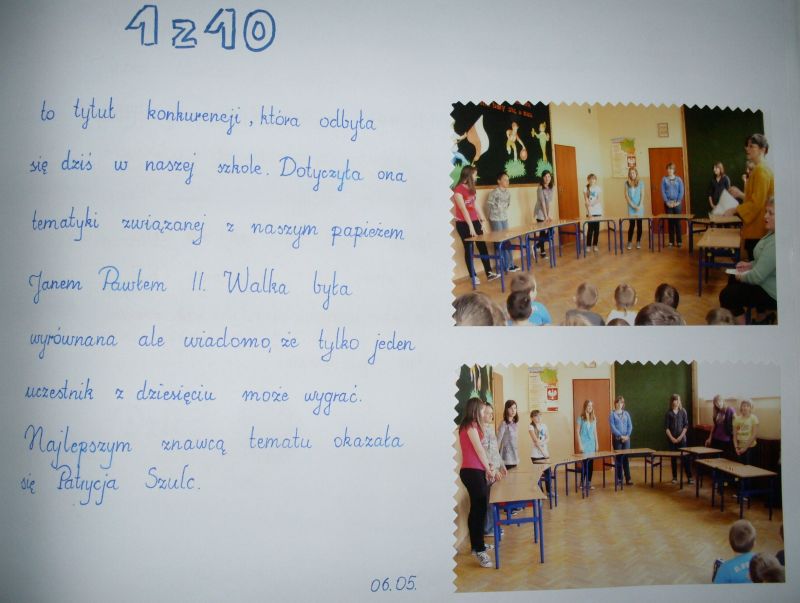 1 z 10
to tytuł konkurencji, która odbyła
się dziś w naszej szkole. Dotyczyła ona
tematyki związanej z naszym papieżem
Janem Pawłem II. Walka była
wyrównana ale wiadomo, że tylko jeden
uczestnik z dziesięciu może wygrać.
Najlepszym znawcą tematu okazała
się Patrycja Szulc.
06.05.